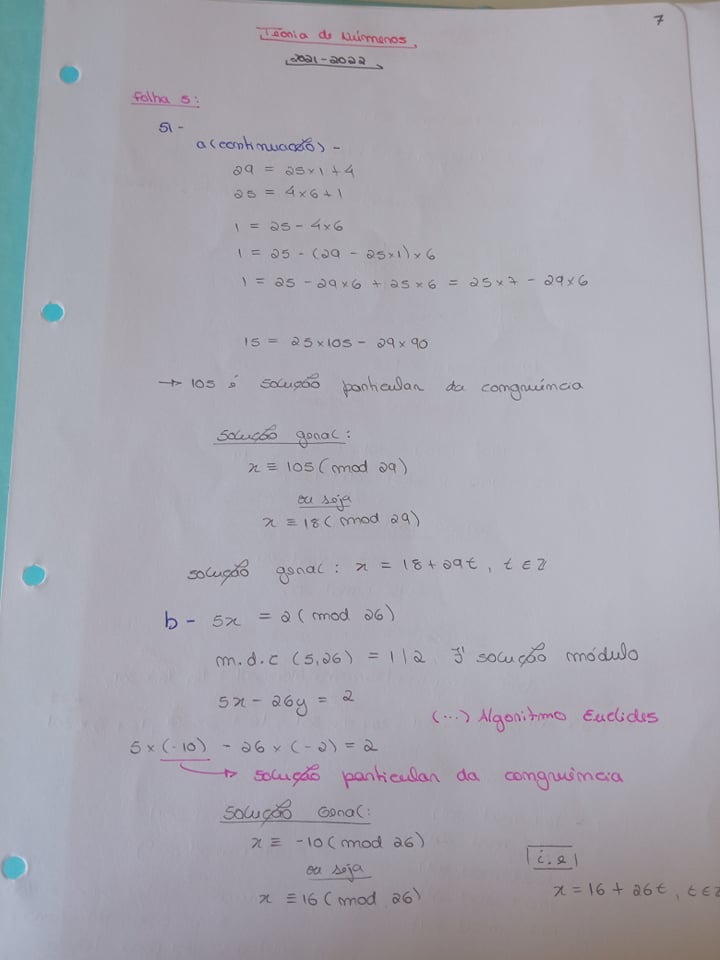 7
Teoria de Números
2021-2022
Folha 5:
5-
a(continuação) -
29 = 25×1+4
25 = 4×6+1
1 = 25 - 4×6
1 = 25 - (29 - 25×1)×6
1 = 25 - 29×6 + 25×6 = 25×7 - 29×6
15 = 25×105 - 29×90
→ 105 é solução particular da congruência
solução geral:
x ≡ 105 (mod 29)
ou seja
x ≡ 18 (mod 29)
solução geral: x = 18+29t, t ∈ ℤ
b - 5x = 2 (mod 26)
m.d.c (5,26) = 1|2 ∃' solução módulo
5x - 26y = 2
(...) Algoritmo Euclides
5 × (-10) - 26 × (-2) = 2
→ solução particular da congruência
solução Geral:
x ≡ -10 (mod 26)
ou seja
x ≡ 16 (mod 26)
i.e
x = 16 + 26t, t ∈ ℤ